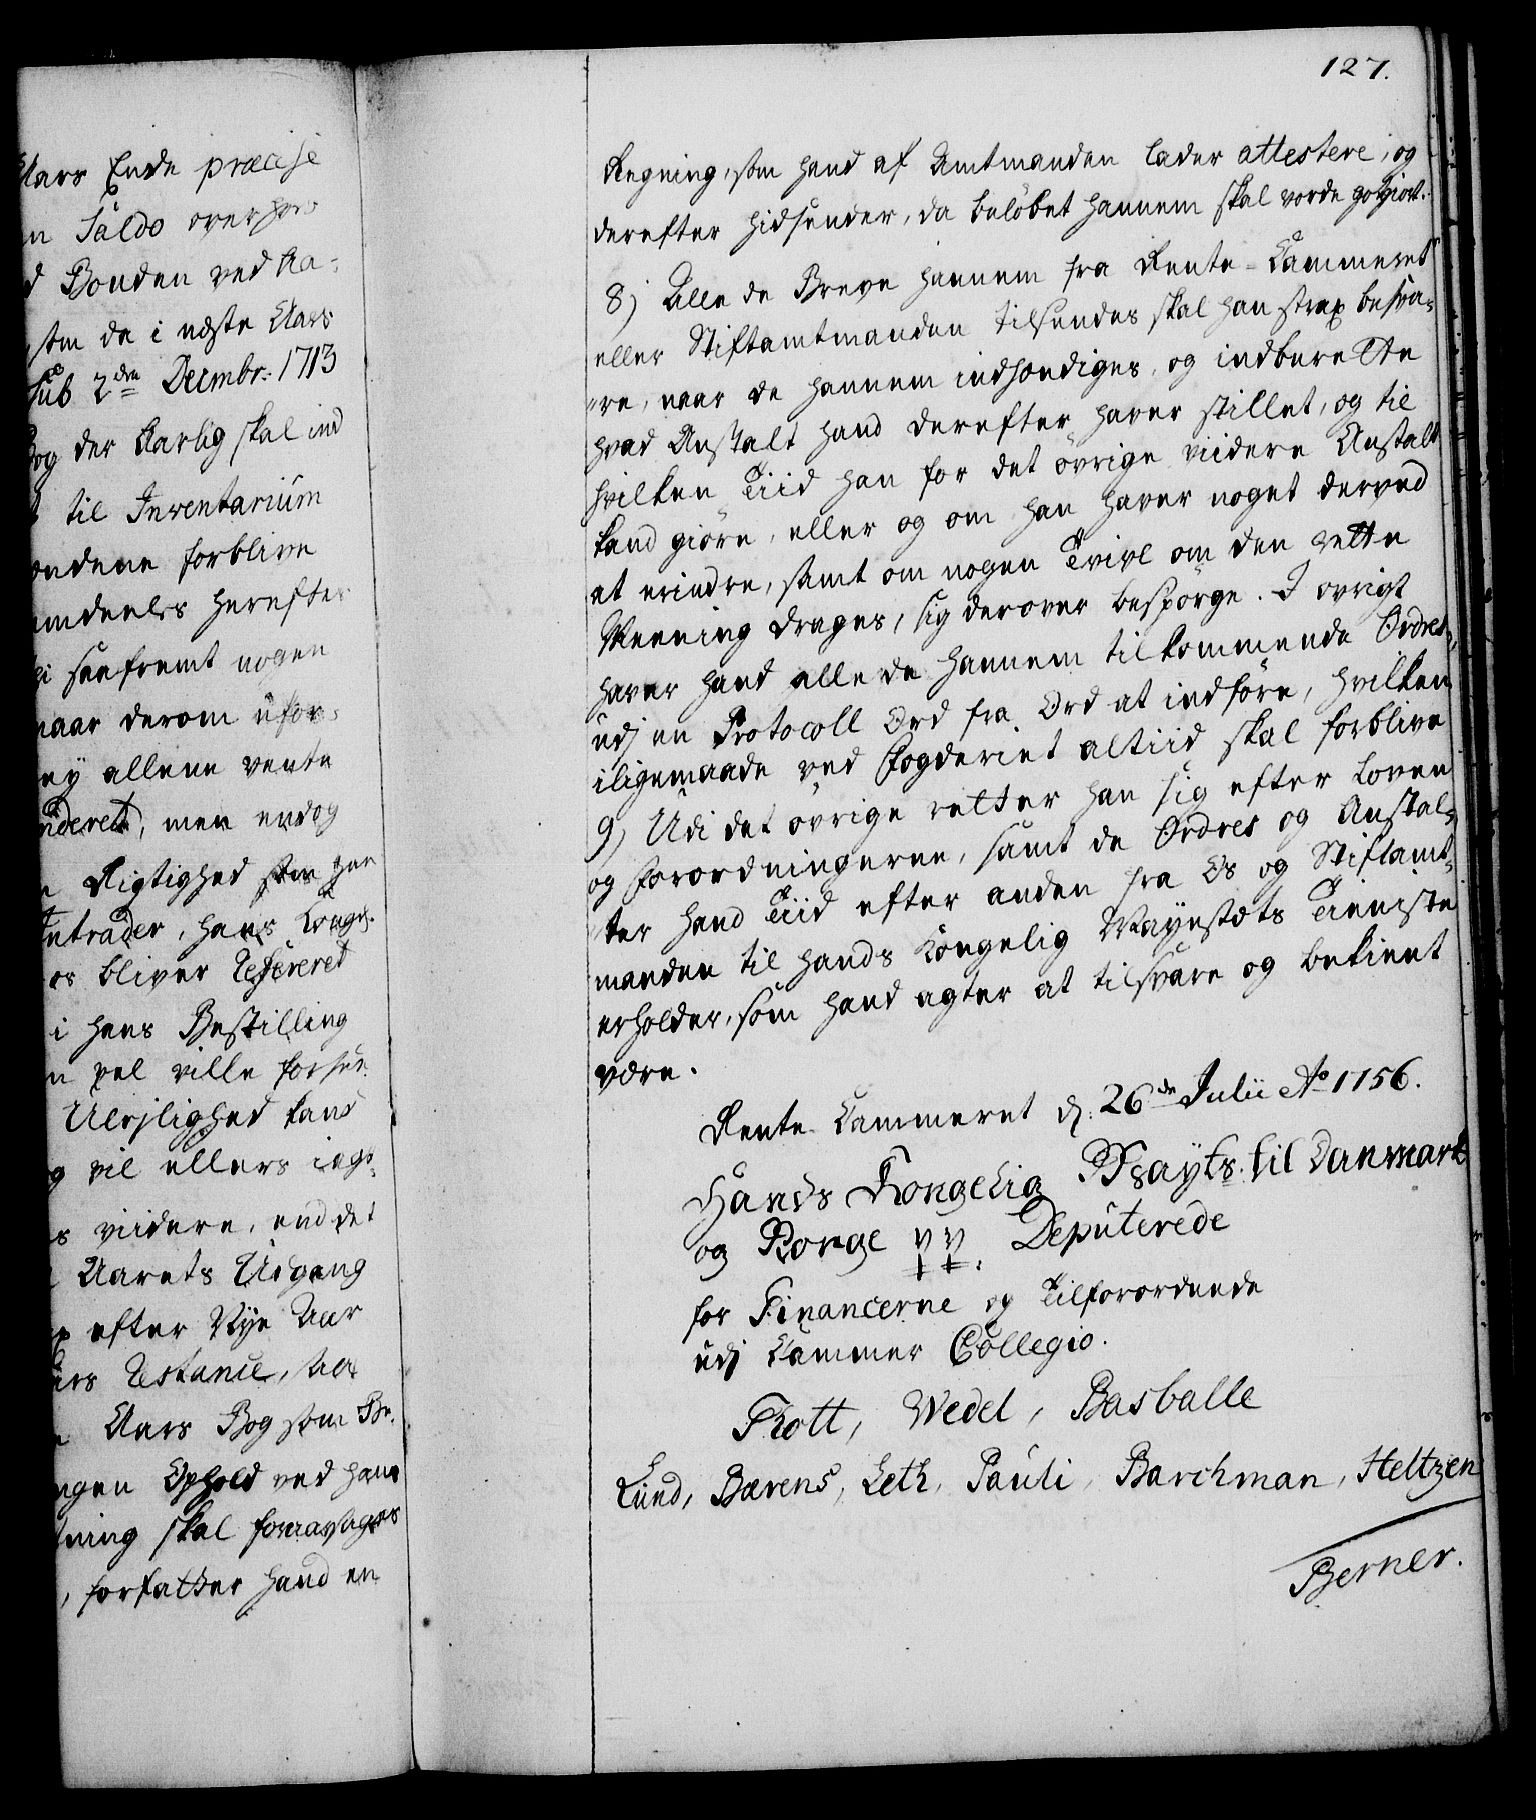 127.
Aars Ende præcise
Saldo over hos
Bonden ved Aa-
som da i næste Aars
sub 2den Decmbr: 1713
og der Aarlig skal ind
til Inventarium
endene forblive
emdeeles herefter
saafremt nogen
naar derom ufor-
ey allene vente
men endog
Rigtighed som han
Intrader, hans Kongl.
os bliver Refereret
i hans Bestilling
vel ville forsee
Uerlighed kand
vil ellers iags
viidere, end det
Aarets Udgang
efter Nye Aar
Restance, som
Aars Bog som Be-
ngen Ophold ved hans
ning skal foretages
, forfatter hand en
Regning, som hand af Amtmanden lader attestere, og
derefter hidsender, da beløbet hannem skal vorde godgiort.
8) Alle de Breve hannem fra Rente-Cammeret
eller Stiftamtmanden tilsendes skal han strax besva-
re, naar de hannem indhændiges, og indberette
hvad Anstalt hand derefter haver stillet, og til
hvilken Tiid han for det øvrige viidere Anstalt
kand giøre, eller og om han haver noget derved
at erindre, samt om nogen Tvivl om den rette
Meening drages, sig derover bespørge. I øvrigt
haver hand alle de hannem tilkommende Ordres,
udj en Protocoll Ord fra Ord at indføre, hvilken
iligemaade ved Fogderiet altiid skal forblive
9) Udi det øvrige retter han sig efter Loven
og Forordningerne, samt de Ordres og Anstal-
ter hand Tiid efter anden fra Os og Stiftamt-
manden til hands Kongelig Mayestæts Tieniste
erholder, som hand agter at tilsvare og bekient
være.
Rente Cammeret d. 26de Julii Ao 1756.
Hands Kongelig Mayts. til Danmark
og Norge pp. Deputerede
for Financerne og Tilforordnede
udj Cammer Collegio.
Thott, Wedel, Basballe
Lund, Bærens, Leth, Pauli, Barchman, Heltzen
Berner.